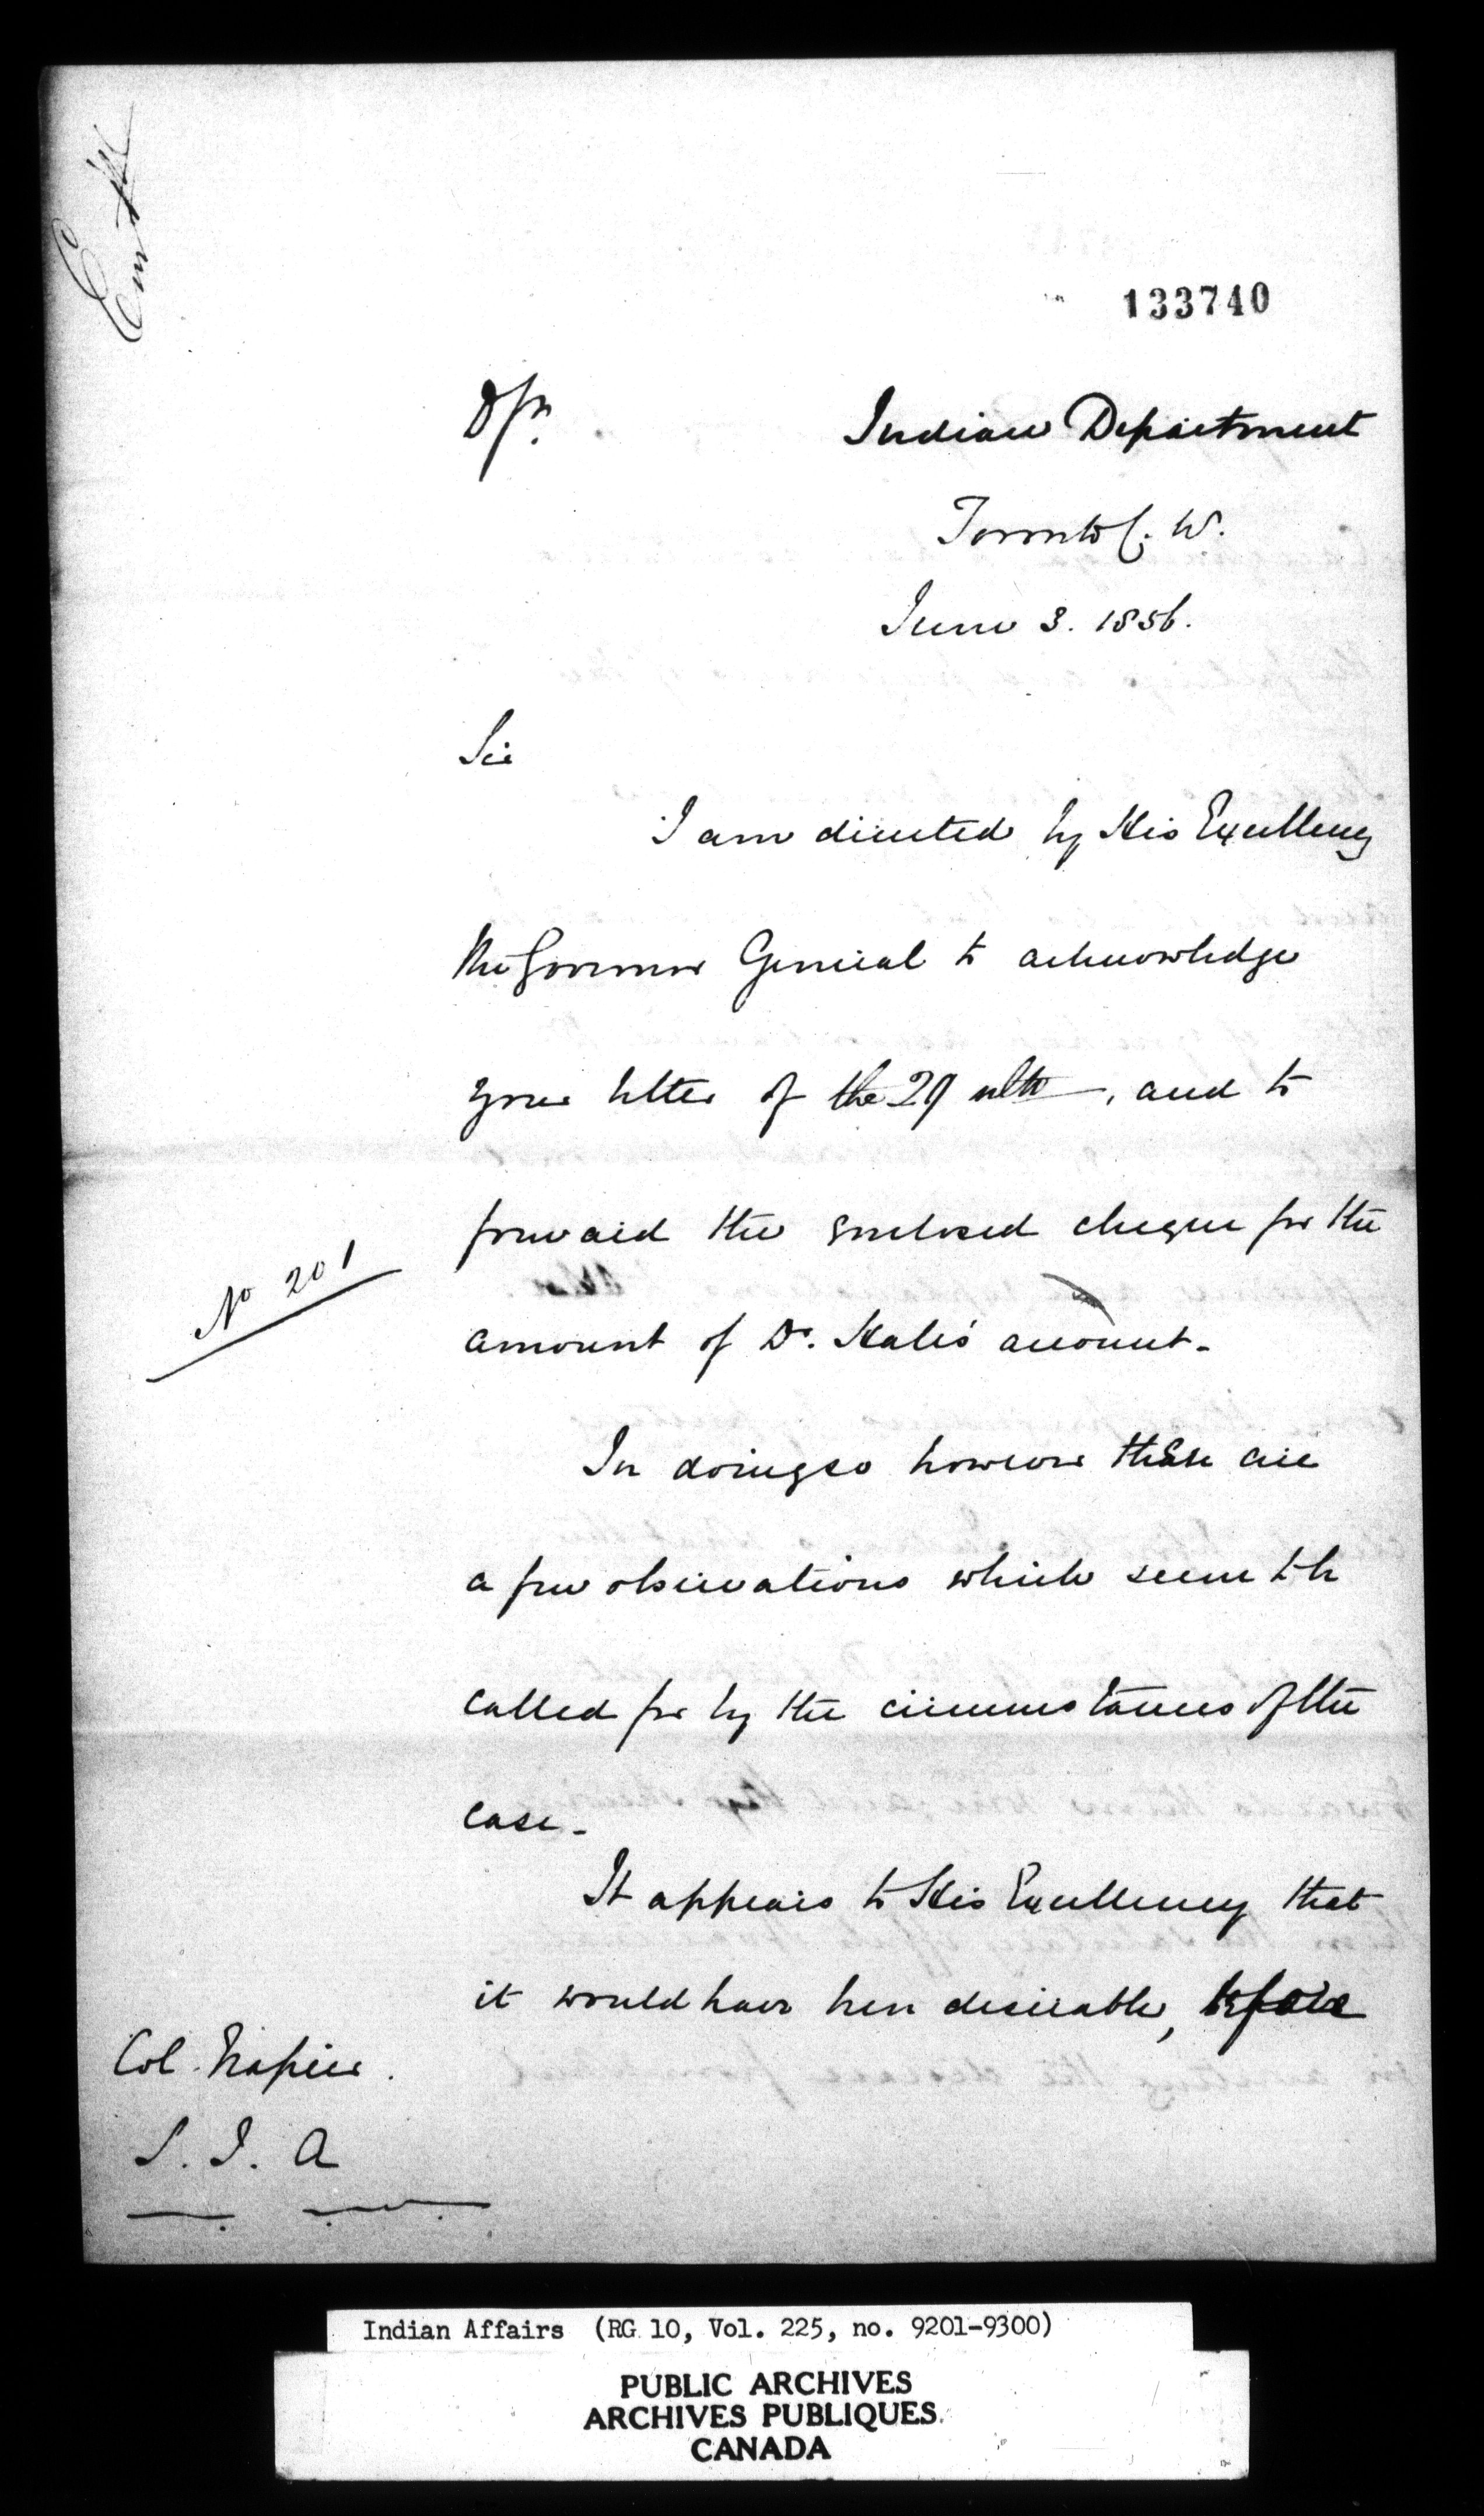 133740
Indian Department
Toronto C. W.
June 3. 1856.
Sir
I am directed by His Excellency
the Governor General to acknowledge
your letter of the 29 ulto, and to
forward the enclosed cheque for the
No 201
amount of Dr. Hall's account.
In doing so however there are
a few observations which seem to be
called for by the circumstances of the
case.
It appears to His Excellency that
it would have been desirable, before
Col. Napier.
S. I. A
Indian Affairs (RG 10, Vol. 225, no. 9201-9300)
PUBLIC ARCHIVES
ARCHIVES PUBLIQUES
CANADA